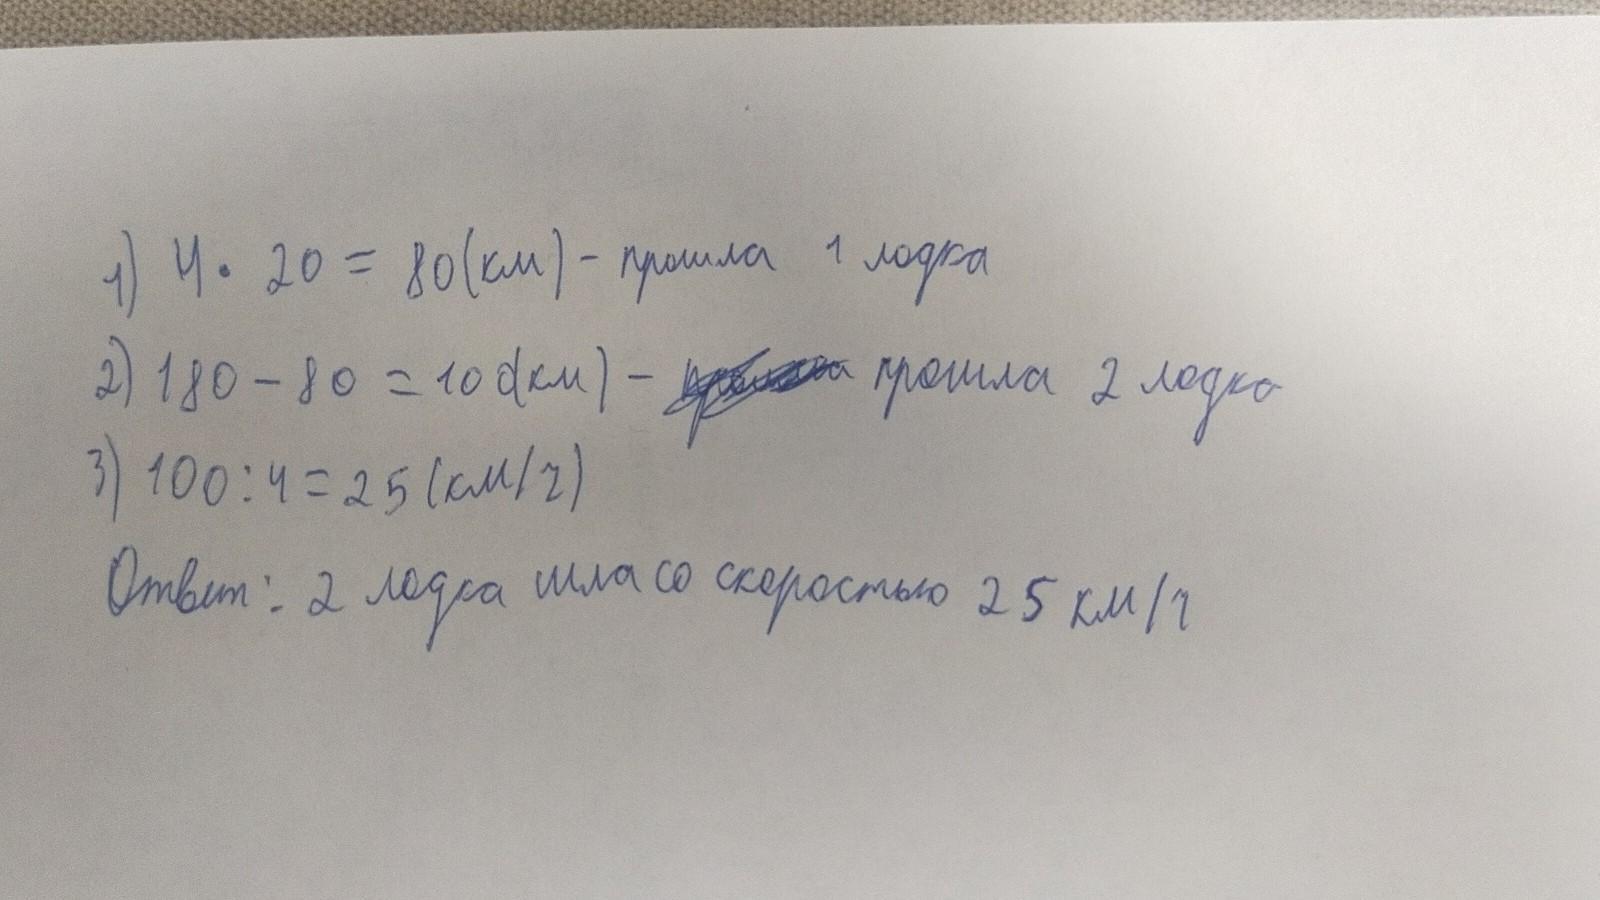 1) 4 · 20 = 80 (км) - прошла 1 лодка
2) 180 - 80 = 100 (км) - прошла 2 лодка
3) 100 : 4 = 25 (км/ч)
Ответ: 2 лодка шла со скоростью 25 км/ч